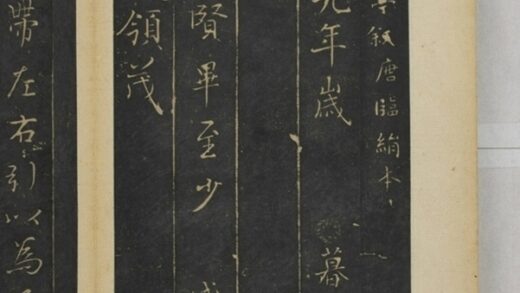 叙唐臨絹本
九年歲 暮
賢畢至少 咸
領茂
帶左右引以為